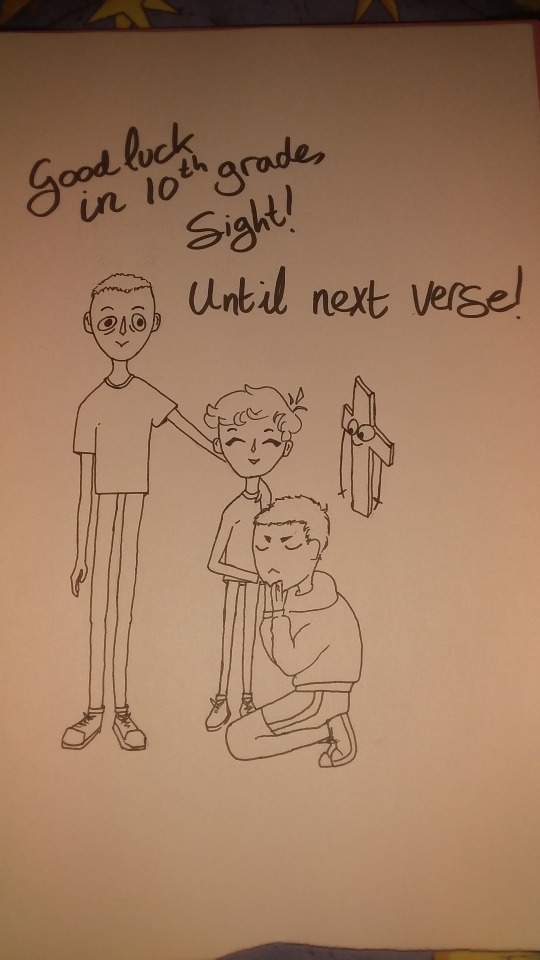 Good luck
in 10th grade,
Sight!
Until next verse!